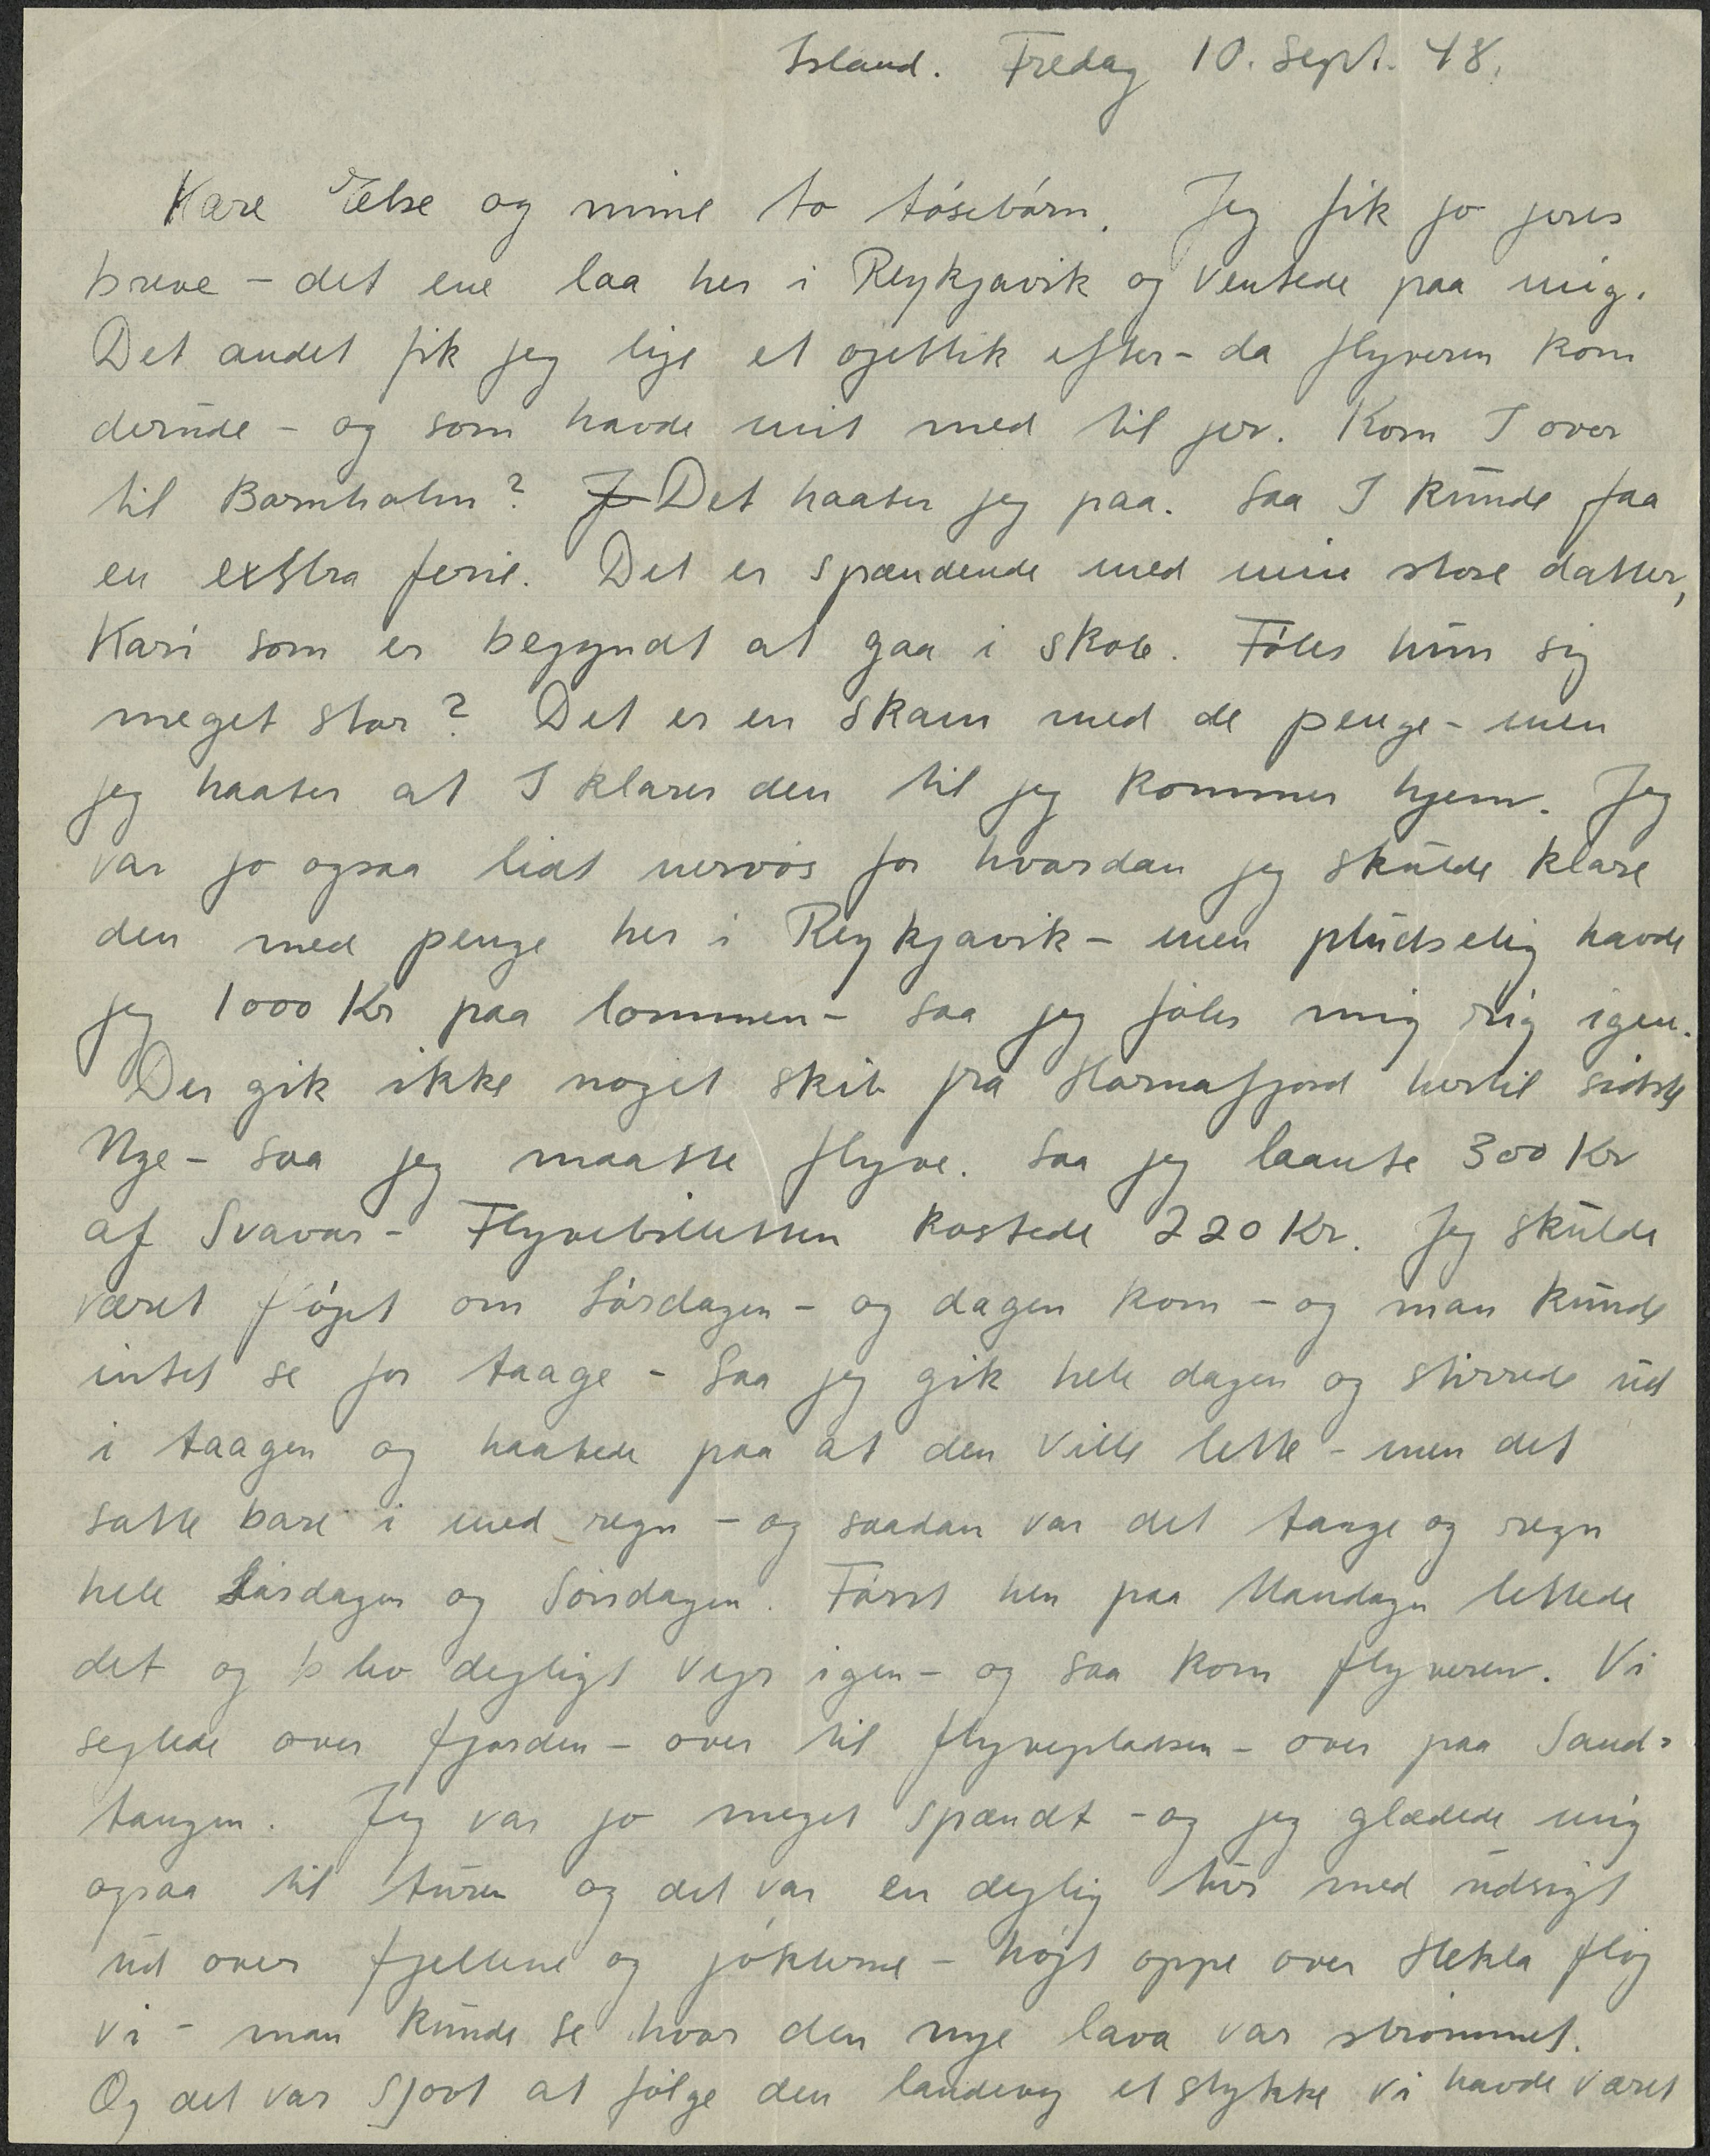 Island. Fredag 10. Sept. 48.
Kære Else og mine to tósebórn. Jeg fik jo jeres
breve - det ene laa her i Reykjavik og ventede paa mig.
Det andet fik jeg lige et øjeblik efter - da flyveren kom
derude - og som havde mit med til jer. Kom I over
til Bornholm? Det haaber jeg paa. Saa I kunde faa
en exstra ferie. Det er spændende med min store datter,
Kari som er begyndt at gaa i skole. Fóler hun sig
meget stor? Det er en skam med de penge - men
jeg haaber at I klarer den til jeg kommer hjem. Jeg
var jo ogsaa lidt nervós for hvordan jeg skulde klare
den med penge her i Reykjavik - men pludselig havde
jeg 1000 Kr paa lommen - saa jeg fóler mig rig igen.
Der gik ikke noget skib fra Hornafjord hertil sidste
Uge - saa jeg maatte flyve. Saa jeg laante 300 Kr
af Svavar - Flyvebilletten kostede 220 Kr. Jeg skulde
været flóget om Lórdagen - og dagen kom - og man kunde
intet se for taage - Saa jeg gik hele dagen og stirrede ud
i taagen og haabede paa at den vilde lette - men det
satte bare i med regn - og saadan var det taage og regn
hele Lórdagen og Sóndagen. Fórst hen paa Mandagen lettede
det og blev dejligt vejr igen - og saa kom flyveren. Vi
sejlede over fjorden - over til flyvepladsen - over paa Sand-
tangen. Jeg var jo meget spændt - og jeg glædede mig
ogsaa til turen og det var en dejlig tur med udsigt
ud over fjellene og jóklerne - hójt oppe over Hekla flój
vi - man kunde se hvor den nye lava var strómmet.
Og det var sjovt at fólge den landevej et stykke vi havde været